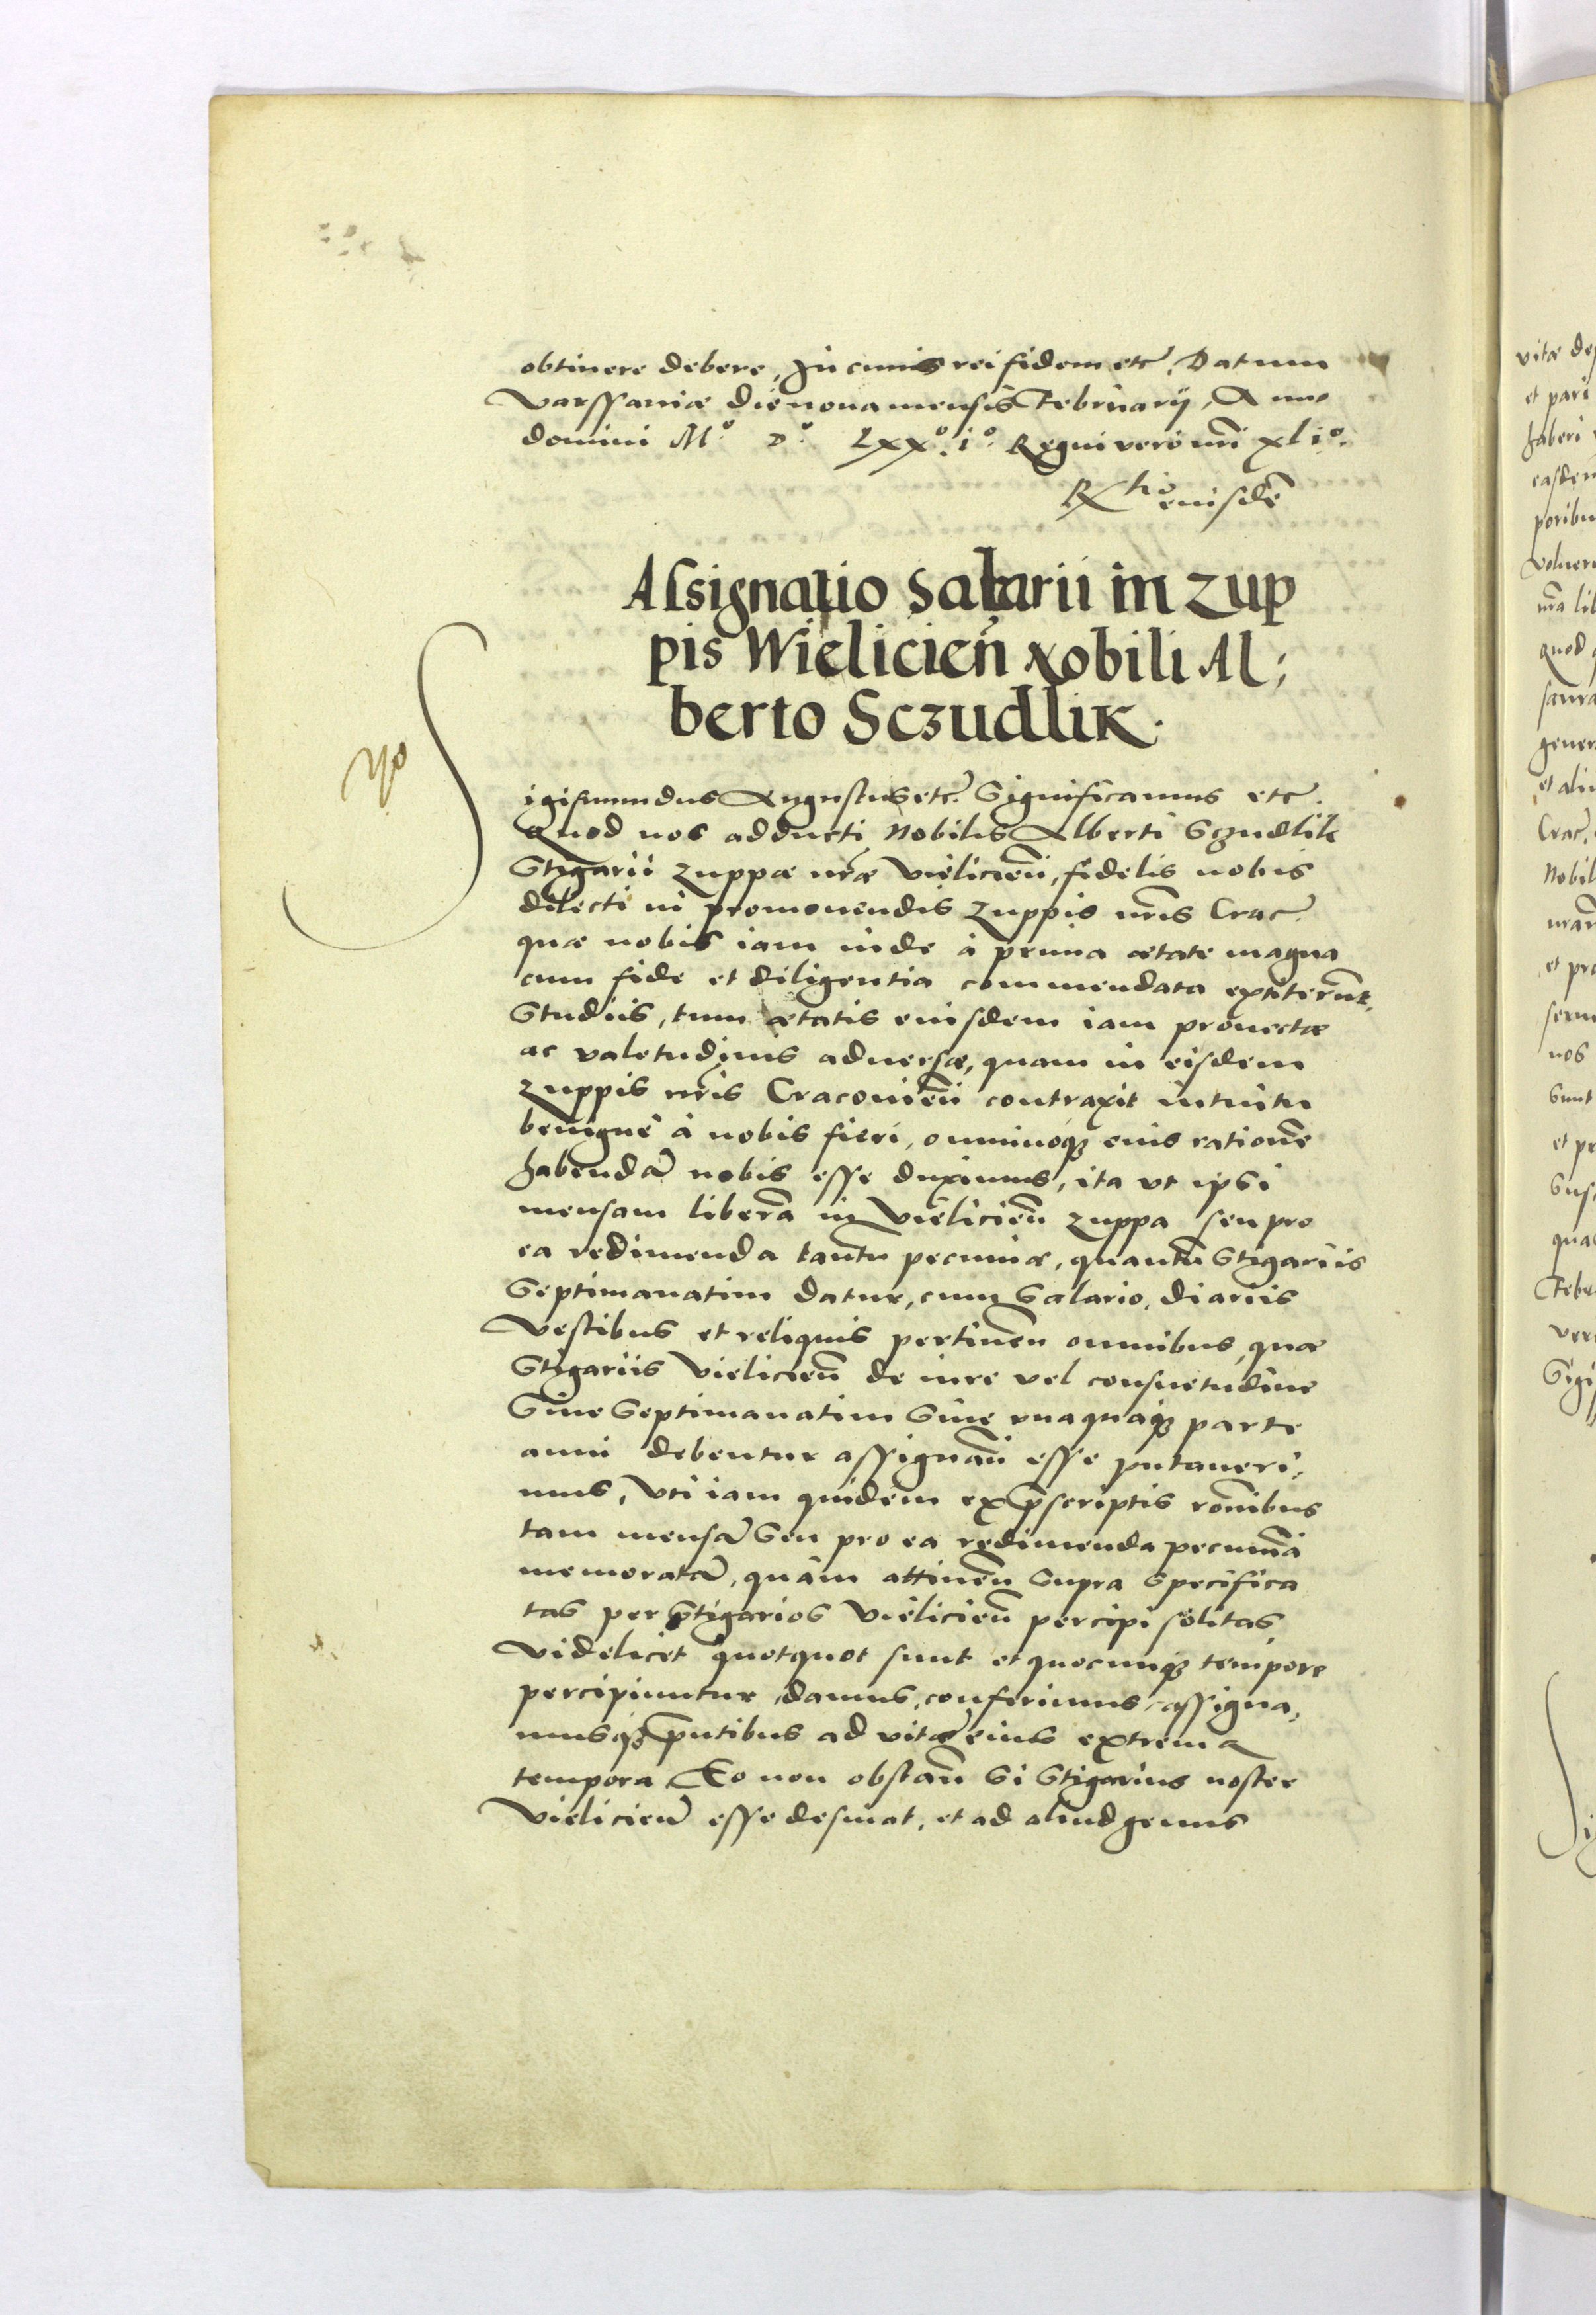 obtinere debere, In cuius rei fidem etc̃. Datum
Varssaniæ die nona mensis Februarij, Anno
domini M.º D.º LXXº. iº. Regni vero nr̃i xliº.
Rtio eiusdẽ
Assignatio Salarii in Zup
pis Wieliciẽn Nobili Al,
berto Sczudlik.
Sigismundus Augustus etc̃. Significamus etc̃.
Quod nos adducti Nobilis Alberti Sczudlik
Stigarii zuppæ nr̃æ Vielicieñ, fidelis nobis
dilecti in promouendis Zuppis nr̃is Crac̃.
quæ nobis iam inde à prima ætate magna
cum fide et diligentia commendata extiterũt,
Studiis, tum ætatis eiusdem iam prouectæ
ac valetudinis aduersæ, quam in eisdem
Zuppis nr̃is Cracouieñ contraxit intuitu
benignè à nobis fieri, omninoq; eius rationẽ
habendã nobis esse duximus, ita vt ipsi
mensam liberã in Vielicieñ zuppa seu pro
ea redimenda tantũ pecuniæ, quantũ Stigariis
Septimanatim datur, cum Salario, diariis
Vestibus et reliquis pertineñ omnibus, quæ
Stigariis Vielicieñ de iure vel consuetudine
Siue Septimanatim Siue vnaquaq; parte
anni debentur assignañ esse putaueri,
mus, Vti iam quidem ex p̃scriptis rõnibus
tam mensã Seu pro ea redimenda pecuniã
memoratã, quàm attineñ Supra Specifica
tas per Stigarios Vielicieñ percipi solitas
Videlicet quotquot sunt et quocunq; tempore
percipiuntur, damus, conferimus, assigna,
musq; p̃ntibus ad vitæ eius extrema
tempora Eo non obstañ Si Stigarius noster
Vielicieñ esse desinat, et ad aliud genus
vitæ
et pari
haberi
poribu
nr̃a lib
quod
gener
et aliu
Crac̃.
Nobil
et pro
nos
Sunt
et pe
quas
Febr